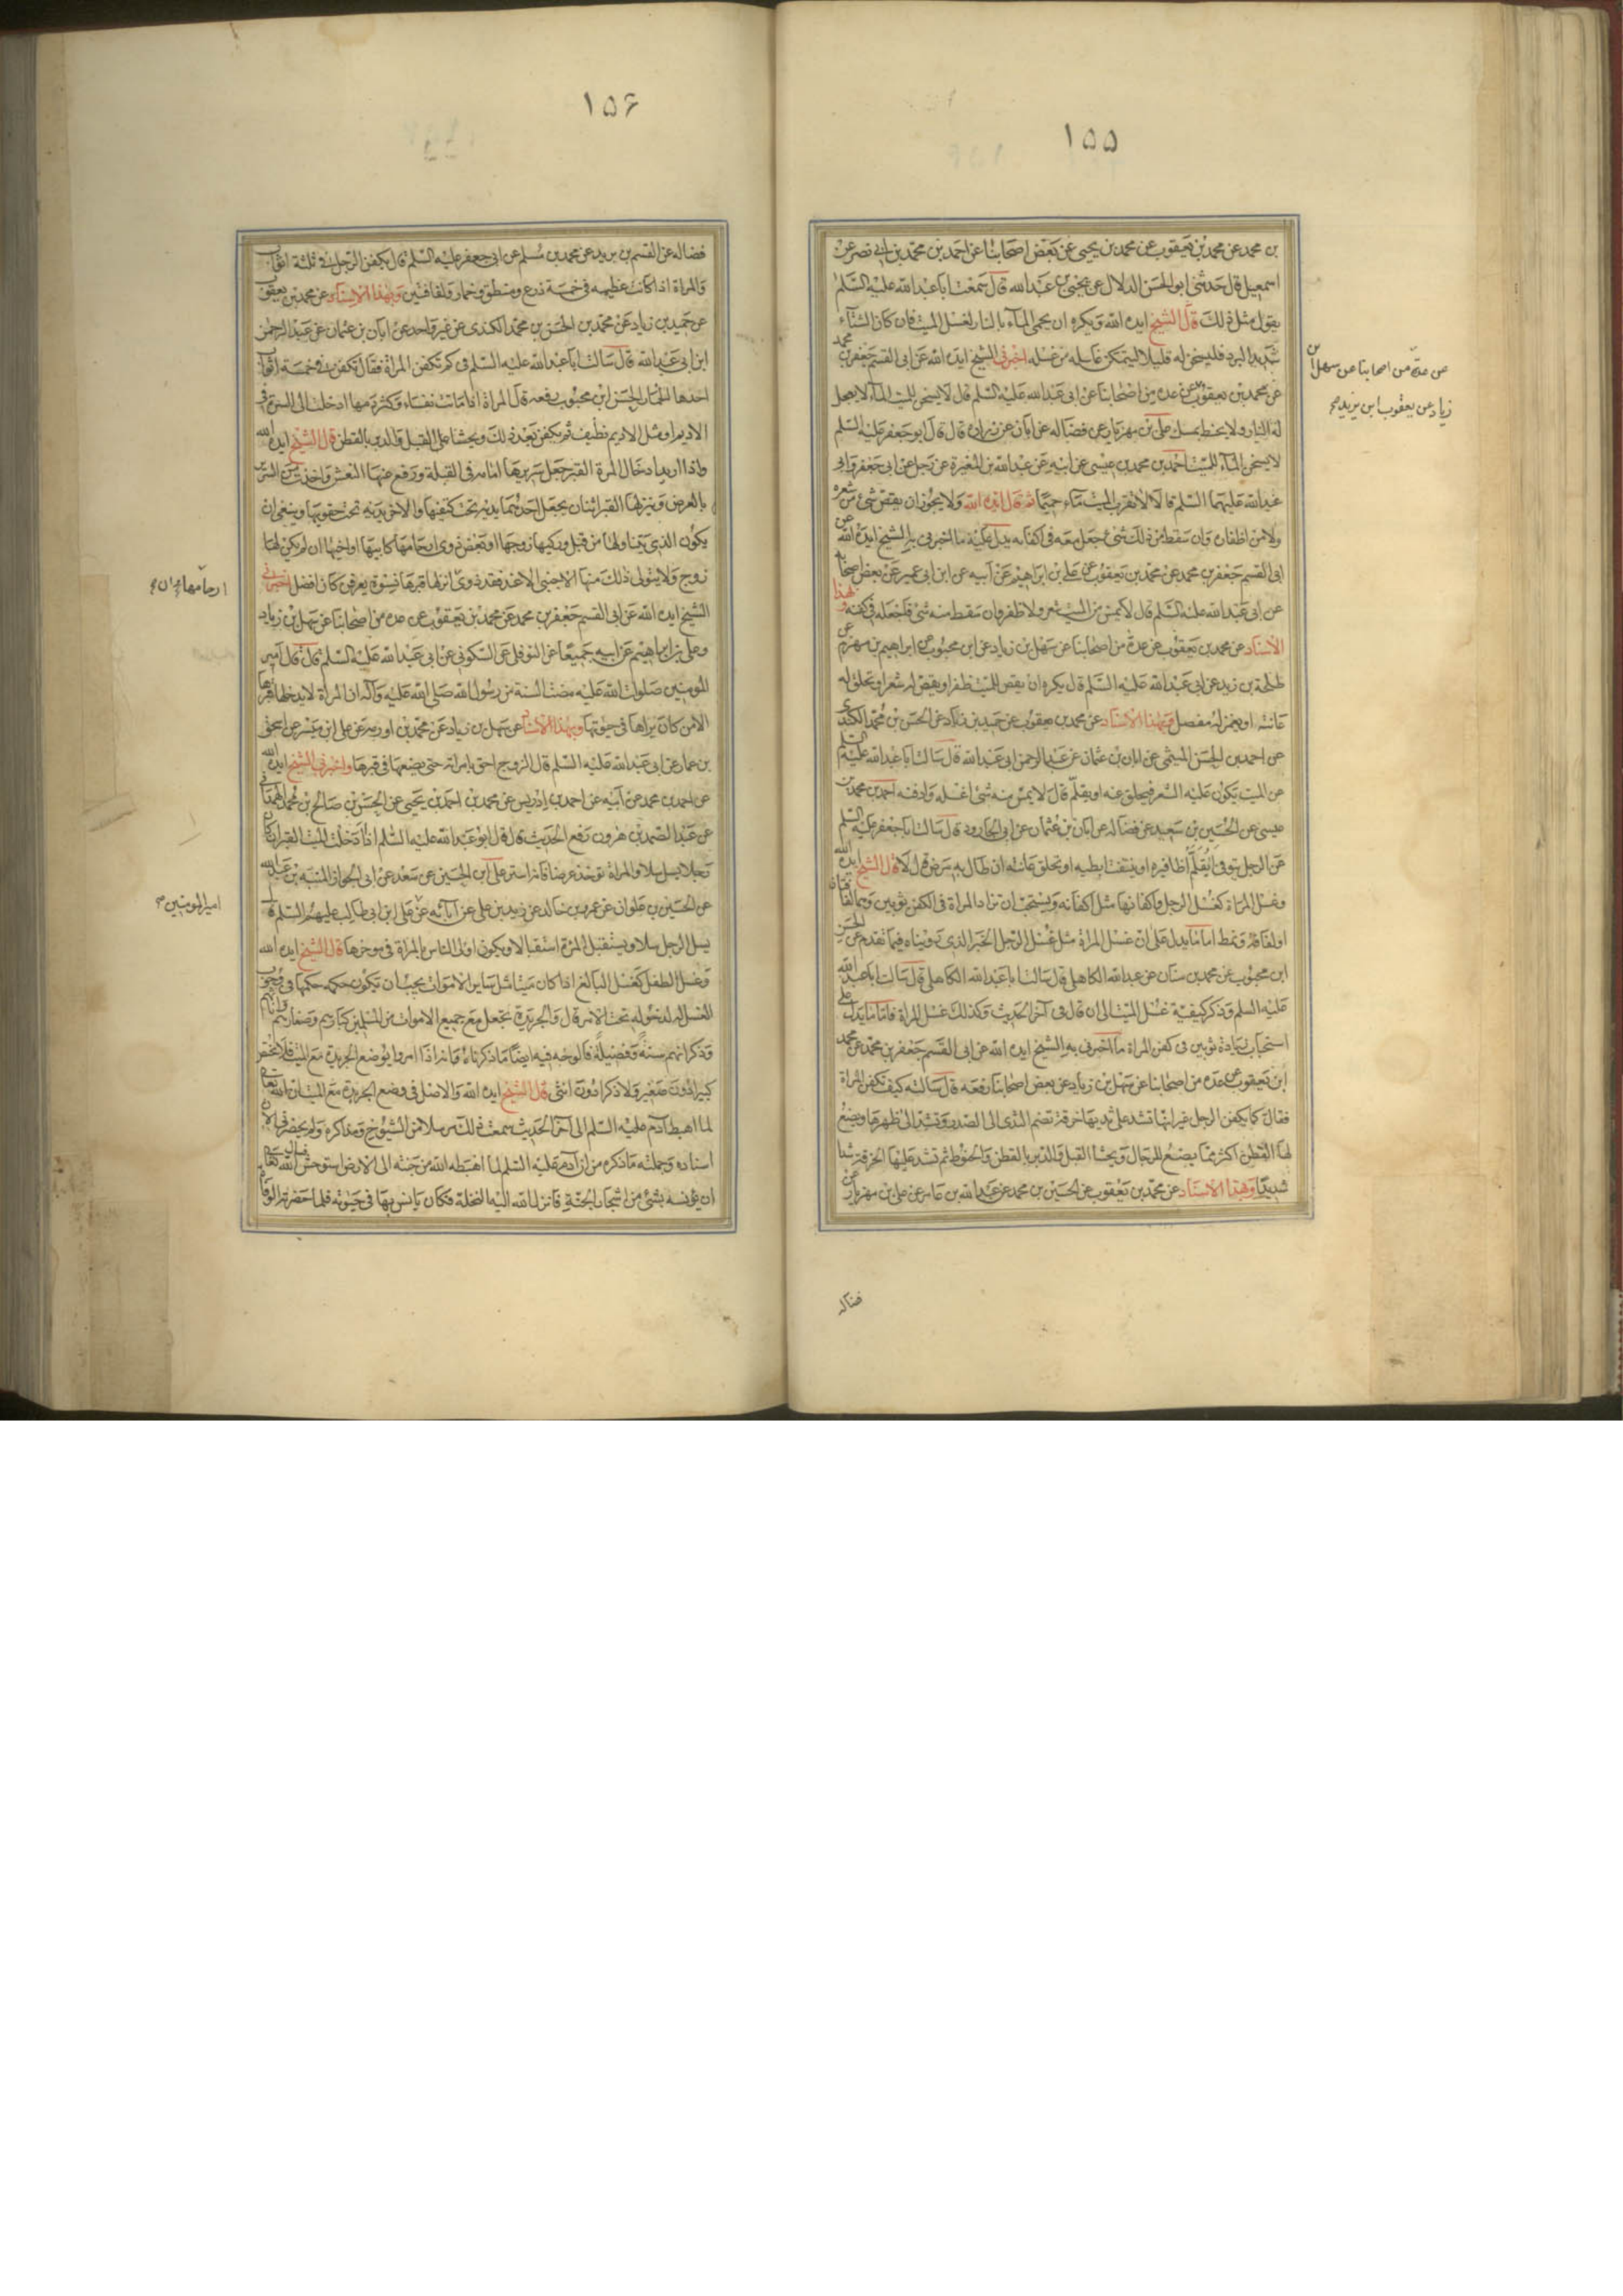 ١٥٥
بن محمد عن محمد بن يعقوب عن محمد بن يحيى عن بعض اصحابنا عن احمد بن محمد بن ابى نصر عن
اسمعيل قال حدثنى ابو الحسن الدلال عن يحيى بن عبدالله قال سمعت ابا عبدالله عليه السلم
يقول مثل ذلك قال الشيخ ايده الله ويكره ان يحمى الماء بالنار لغسل الميت فان كان الشتاء
شديد البرد فليسخن له قليلا ليتمكن غاسله من غسله اخبرنى الشيخ ايده الله عن ابى القسم جعفر بن محمد
عن محمد بن يعقوب عن عدة من اصحابنا عن ابى عبدالله عليه السلم قال لا يسخن للميت الماء لا يعجل
له النار ولا يحنط بمسك على بن مهزيار عن فضاله عن ابان عن زراره قال قال ابو جعفر عليه السلم
لا يسخن الماء للميت احمد بن محمد بن عيسى عن ابيه عن عبدالله بن المغيرة عن رجل عن ابى جعفر وابى
عبدالله عليهما السلم قالا لا تقرب الميت ماء حميما ثم قال ايده الله ولا يجوز ان يقص شئ من شعره
ولا من اظفاره وان سقط من ذلك شئ جعل معه فى اكفانه يدل عليه ما اخبرنى به الشيخ ايده الله عن
ابى القسم جعفر بن محمد عن محمد بن يعقوب عن على بن ابراهيم عن ابيه عن ابن ابى عمير عن بعض اصحابه
عن ابى عبدالله عليه السلم قال لا يمس من الميت شعر ولا ظفر وان سقط منه شئ فاجعله فى كفنه وبهذا
الاسناد عن محمد بن يعقوب عن عدة من اصحابنا عن سهل بن زياد عن ابن محبوب عن ابراهيم بن مهزم عن
طلحة بن زيد عن ابى عبدالله عليه السلم قال يكره ان يقص للميت ظفر او يقص له شعر او تحلق له
عانته او يغمز له مفصل وبهذا الاسناد عن محمد بن يعقوب عن حميد بن زياد عن الحسن بن محمد الكندى
عن احمد بن الحسن الميثمى عن ابان بن عثمان عن عبد الرحمن ابى عبدالله قال سالت ابا عبدالله عليه السلم
عن الميت يكون عليه الشعر فيحلق عنه او يقلم قال لا يمس منه شئ اغسله وادفنه احمد بن محمد بن
عيسى عن الحسين بن سعيد عن فضاله عن ابان بن عثمان عن ابى الجارود قال سالت ابا جعفر عليه السلم
عن الرجل يتوفى ايقلم اظافيره او ينتف ابطيه او تحلق عانته ان طال به مرض قال لا قال الشيخ ايده الله
وغسل المراة كغسل الرجل واكفانها مثل اكفانه ويستحب ان تزاد المراة فى الكفن ثوبين وهما لفافتان
او لفافة ونمط اما ما يدل على ان غسل المراة مثل غسل الرجل الخبر الذى رويناه فيما تقدم عن الحسن
ابن محبوب عن محمد بن سنان عن عبدالله الكاهلى قال سالت ابا عبدالله الكاهلى قال سالت ابا عبدالله
عليه السلم وذكر كيفية غسل الميت الى ان قال فى آخر الحديث وكذلك غسل المراة فاما ما يدل على
استحباب زيادة ثوبين فى كفن المراة ما اخبرنى به الشيخ ايده الله عن ابى القسم جعفر بن محمد عن محمد
ابن يعقوب عن عدة من اصحابنا عن سهل بن زياد عن بعض اصحابنا رفعه قال سالته كيف تكفن المراة
فقال كما يكفن الرجل غير انها تشد على ثدييها خرقة تضم الثدى الى الصدر وتشد الى ظهرها ويصنع
لها القطن اكثر مما يصنع للرجال ويحشا القبل والدبر بالقطن والحنوط ثم تشد عليها الخرقة شدا
شديدا وبهذا الاسناد عن محمد بن يعقوب عن الحسين بن محمد عن عبدالله بن عامر عن على بن مهزيار عن
عن عدة من اصحابنا عن سهل بن
زياد عن يعقوب ابن يزيد
فضاله
١٥۶
فضاله عن القسم بن بريد عن محمد بن مسلم عن ابى جعفر عليه السلم قال يكفن الرجل فى ثلثة اثواب
والمراة اذا كانت عظيمه فى خمسة درع ومنطق وخمار ولفافتين وبهذا الاسناد عن محمد بن يعقوب
عن حميد بن زياد عن محمد بن الحسن بن محمد الكندى عن غير واحد عن ابان بن عثمان عن عبد الرحمن
ابن ابى عبدالله قال سالت ابا عبدالله عليه السلم فى كم تكفن المراة فقال تكفن فى خمسة اثواب
احدها الخمار الحسن ابن محبوب رفعه قال المراة اذا ماتت نفساء وكثر دمها ادخلت الى السرة فى
الاديم او مثل الاديم نظيف ثم تكفن بعد ذلك ويحشا على القبل والدبر بالقطن قال الشيخ ايده الله
واذا اريد ادخال المرة القبر جعل سريرها امامه فى القبلة ورفع عنها النعش واخذت من السرير
بالعرض وينزلها القبر اثنان يجعل احدهما يديه تحت كتفيها والاخر يديه تحت حقويها وينبغى ان
يكون الذى يتناولها من قبل وركيها زوجها او بعض ذوى ارحامها كابيها او اخيها ان لم يكن لها
زوج ولا يتولى ذلك منها الاجنبى الا عند فقد ذوى انزلها قبرها نسوة يعرفن كان افضل اخبرنى
الشيخ ايده الله عن ابى القسم جعفر بن محمد عن محمد بن يعقوب عن عدة من اصحابنا عن سهل بن زياد
وعلى بن ابراهيم عن ابيه جميعا عن النوفلى عن السكونى عن ابى عبدالله عليه السلم قال قال امير
المومنين صلوات الله عليه مضت السنة من رسول الله صلى الله عليه وآله ان المراة لا يدخلها قبرها
الا من كان يراها فى حيوتها وبهذا الاسناد عن سهل بن زياد عن محمد بن اورمه عن على ابن ميسر عن اسحق
بن عمار عن ابى عبدالله عليه السلم قال الزوج احق بامراته حتى يضعها فى قبرها واخبرنى الشيخ ايده الله
عن احمد بن محمد عن ابيه عن احمد بن ادريس عن محمد بن احمد بن يحيى عن الحسن بن صالح بن محمد الهمدانى
عن عبد الصمد بن هرون رفع الحديث قال قال ابو عبدالله عليه السلم اذا ادخلت الميت القبر ان كان
رجلا يسل سلا والمراة توخذ عرضا فانه استر على ابن الحسين عن سعد عن ابى الجوزا المنبه بن عبدالله
عن الحسين بن علوان عن عمرو بن خالد عن زيد بن على عن آبائه عن على ابن ابى طالب عليهم السلم قال
يسل الرجل سلا ويستقبل المرة استقبالا ويكون اولى الناس بالمراة فى موخرها قال الشيخ ايده الله
وغسل الطفل كغسل البالغ اذا كان ميتا مثل ساير الاموات يجب ان يكون حكمه حكمها فى وجوب
الغسل له لدخوله تحت الامر قال والجريدة تجعل مع جميع الاموات من المسلمين كبارهم وصغارهم واناثهم
وذكرانهم سنة وفضيلة فالوجه فيه ايضا ما ذكرناه وانه اذا امروا بوضع الجريدة مع الميت فلا يختص
كبيرا دون صغير ولا ذكرا دون انثى قال الشيخ ايده الله والاصل فى وضع الجريدة مع الميت ان الله تعالى
لما اهبط آدم عليه السلم الى آخر الحديث سمعت ذلك مرسلا من الشيوخ ومذاكره ولم يحضرنى الان
اسناده وجملته ما ذكره من ان آدم عليه السلم لما اهبطه الله من جنته الى الارض استوحش فسال الله تعالى
ان يؤنسه بشئ من اشجار الجنة فانزل الله اليه النخلة فكان يانس بها فى حيوته فلما حضرته الوفاة
ارحامها وان
امير المومنين